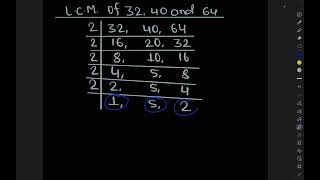 L.C.M. Of 32, 40 and 64
2 32, 40, 64
2 16, 20, 32
2 8, 10, 16
2 4, 5, 8
2 2, 5, 4
1, 5, 2